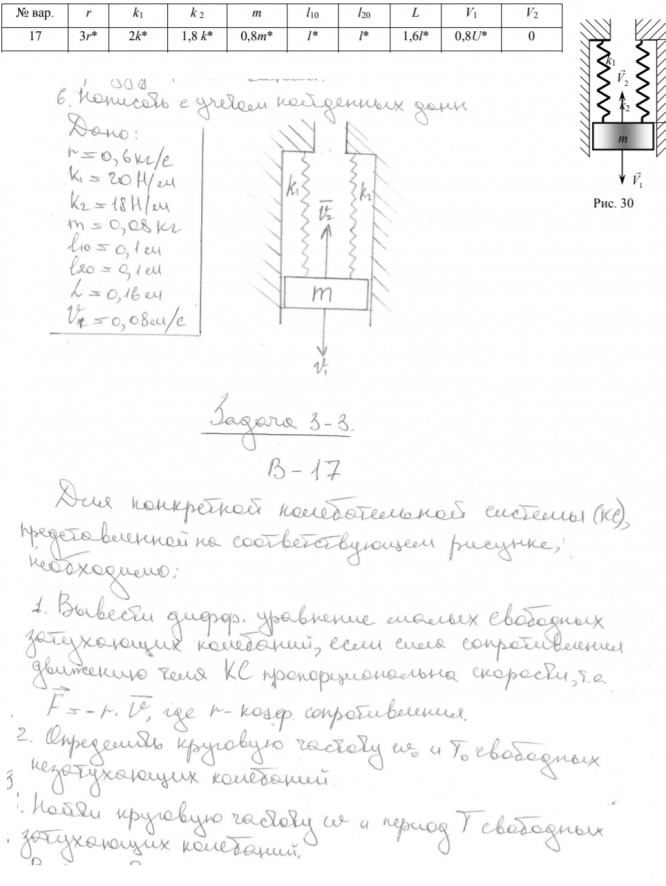 № вар. r k₁ k ₂ m l₁₀ l₂₀ L V₁ V₂
17 3r* 2k* 1,8 k* 0,8m* l* l* 1,6l* 0,8U* 0
k₁
V⃗₂
k₂
m
V⃗₁
Рис. 30
6. Написать с учетом найденных данн
Дано:
r = 0,6 кг/с
k₁ = 20 Н/м
k₂ = 18 Н/м
m = 0,08 кг
l₁₀ = 0,1 м
l₂₀ = 0,1 м
L = 0,16 м
V₁ = 0,08 м/с
k₁
v̅₂
k₂
m
v̅₁
Задача 3-3.
В - 17
Для конкретной колебательной системы (КС),
представленной на соответствующем рисунке,
необходимо:
1. Вывести дифф. уравнение малых свободных
затухающих колебаний, если сила сопротивления
движению тела КС пропорциональна скорости, т.е.
F⃗ = - r · V⃗, где r - коэф. сопротивления.
2. Определить круговую частоту ω₀ и T₀ свободных
незатухающих колебаний.
3. Найти круговую частоту ω и период T свободных
затухающих колебаний.